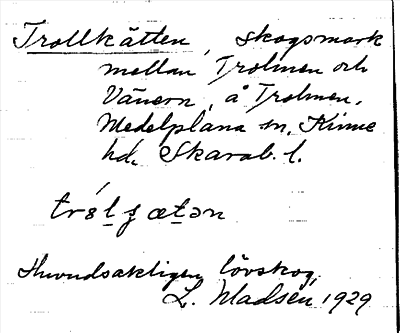 Trollkätten, skogsmark
mellan Trolmen och
Vänern, å Trolmen,
Medelplana sn, Kinne
hd, Skarab. l.
Huvudsakligen lövskog,
L. Madsén 1929